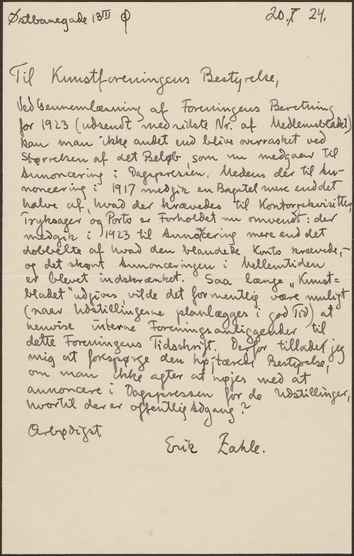 Østbanegade 13III Ø 20.I 24.
Til Kunstforeningens Bestyrelse,
Ved Gennemlæsning af Foreningens Beretning
for 1923 (udsendt med sidste Nr. af Medlemsbladet)
kan man ikke andet end blive overrasket ved
Størrelsen af det Beløb, som nu medgaar til
Annoncering i Dagspressen. Medens der til An-
noncering i 1917 medgik en Bagatel mere end det
halve af, hvad der krævedes til Kontorrekvisitter,
Tryksager og Porto er Forholdet nu omvendt: der
medgik i 1923 til Annoncering mere end det
dobbelte af hvad den blandede Konto krævede, -
og det skønt Annonceringen i Mellemtiden
er blevet indskrænket. Saa længe "Kunst-
bladet" udgives, vilde det formentlig være muligt
(naar Udstillingerne planlægges i god Tid) at
henvise interne Foreningsanliggender til
dette Foreningens Tidsskrift. Derfor tillader jeg
mig at forespørge den højtærede Bestyrelse,
om man ikke agter at nøjes med at
annoncere i Dagspressen for de Udstillinger,
hvortil der er offentlig Adgang?
Ærbødigst
Erik Zahle.